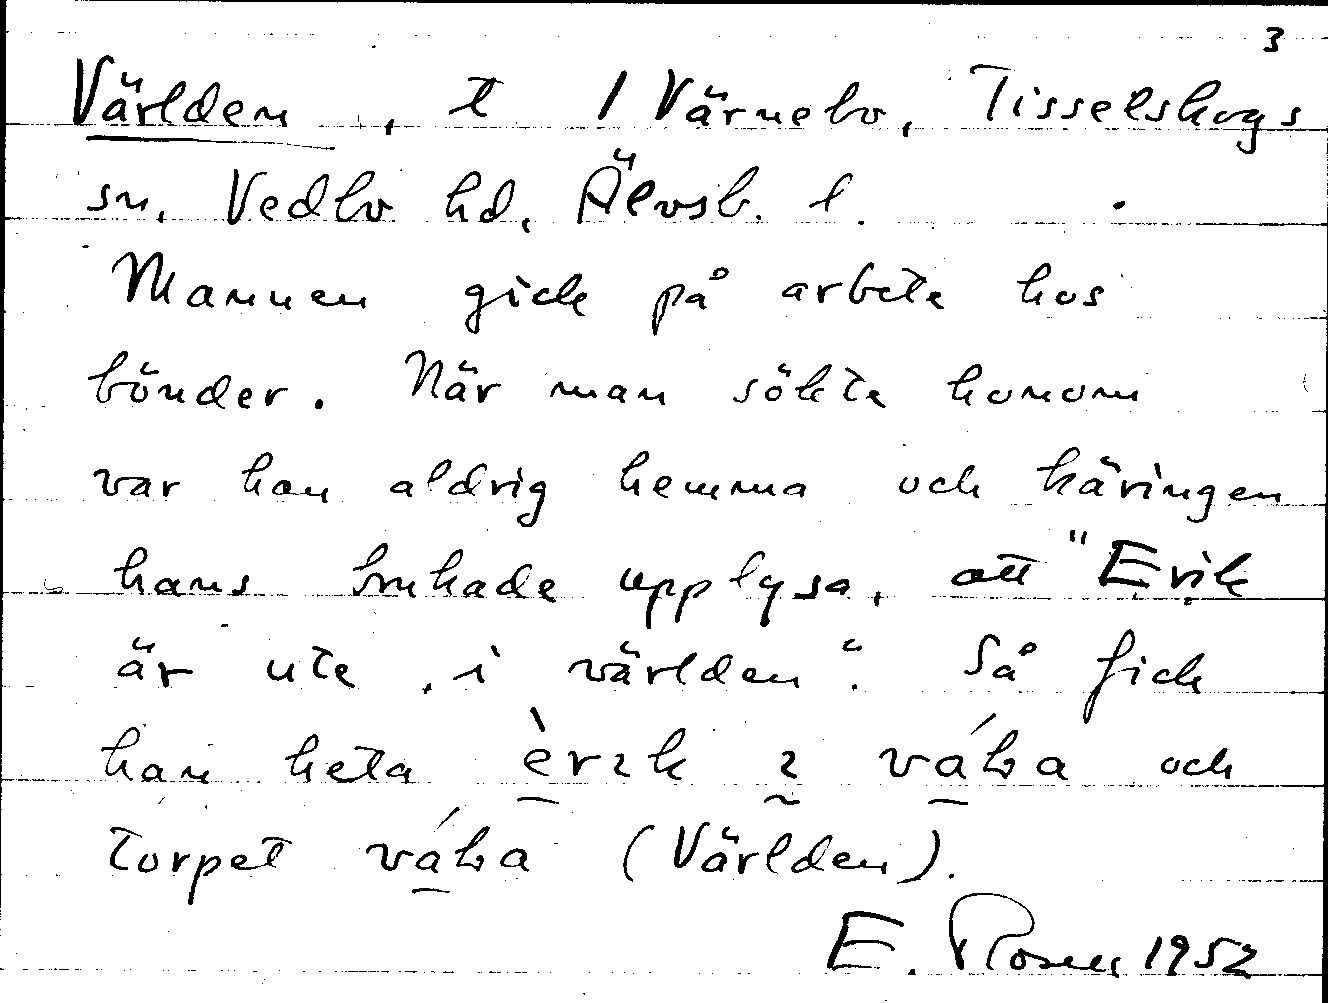 3
Världen, t 1 Värnebo, Tisselskogs
sn, Vedbo hd, Älvsb. l.
Mannen gick på arbete hos
bönder. När man sökte honom
var han aldrig hemma och käringen
hans brukade upplysa, att "Erik
är ute i världen". Så fick
han heta èrɩk ɩ váḷa och
torpet váḷa (Världen).
E. Rosen 1952